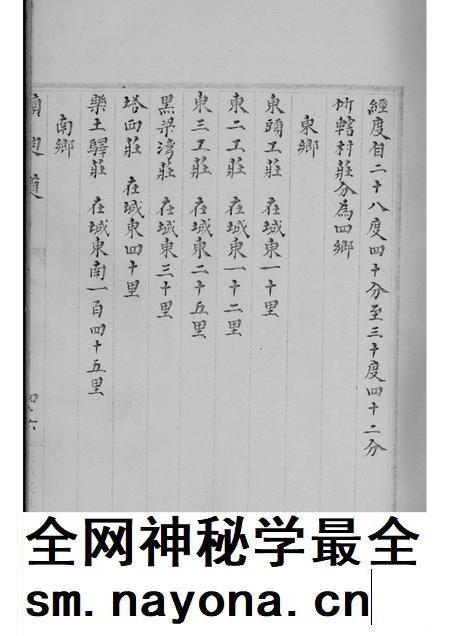 經度自二十八度四十分至三十度四十二分
所轄村莊分為四鄉
東鄉
東頭工莊 在城東一十里
東二工莊 在城東一十二里
東三工莊 在城東二十五里
黑梁灣莊 在城東三十里
塔西莊 在城東四十里
樂土驛莊 在城東南一百四十五里
南鄉
全网神秘学最全
sm.nayona.cn